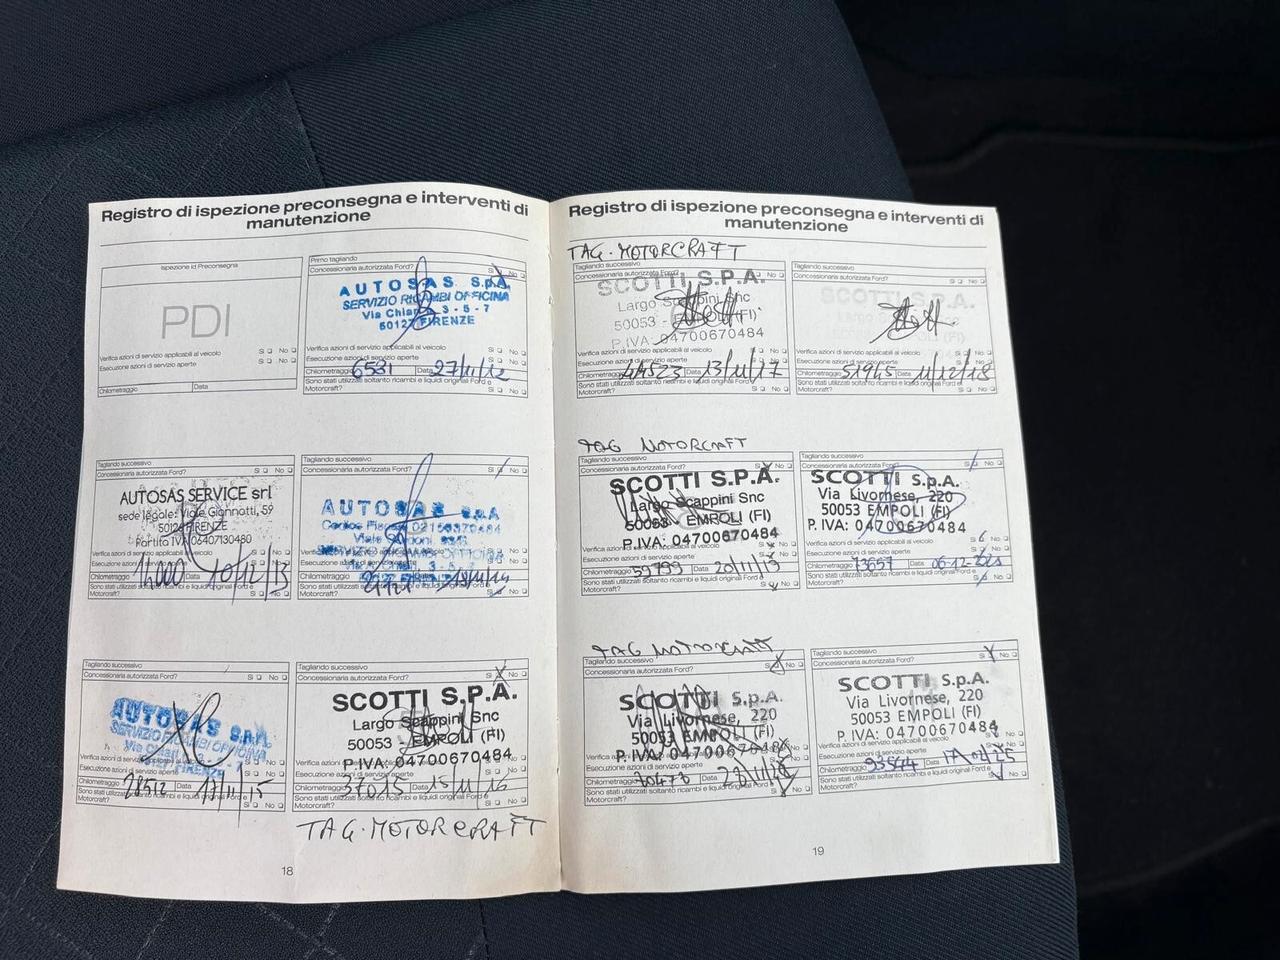 Registro di ispezione preconsegna e interventi di
manutenzione
Ispezione Id Preconsegna
PDI
Verifica azioni di servizio applicabili al veicolo Si No
Esecuzione azioni di servizio aperte Si No
Chilometraggio Data
Primo tagliando
Concessionaria autorizzata Ford? Si No
AUTOSAS S.p.A.
SERVIZIO RICAMBI OFFICINA
Via Chiari 3 - 5 - 7
50127 FIRENZE
Verifica azioni di servizio applicabili al veicolo Si No
Esecuzione azioni di servizio aperte Si No
Chilometraggio 6531 Data 27/11/12
Sono stati utilizzati soltanto ricambi e liquidi originali Ford e
Motorcraft? Si No
Tagliando successivo
Concessionaria autorizzata Ford? Si No
AUTOSAS SERVICE srl
sede legale: Viale Giannotti, 59
50126 FIRENZE
Partita IVA 06407130480
Verifica azioni di servizio applicabili al veicolo Si No
Esecuzione azioni di servizio aperte Si No
Chilometraggio 14000 Data 10/12/13
Sono stati utilizzati soltanto ricambi e liquidi originali Ford e
Motorcraft? Si No
Tagliando successivo
Concessionaria autorizzata Ford? Si No
AUTOSAS S.p.A.
Chilometraggio Data
Motorcraft? Si No
Tagliando successivo
Concessionaria autorizzata Ford? Si No
AUTOSAS S.p.A.
SERVIZIO RICAMBI OFFICINA
FIRENZE
Verifica azioni di servizio applicabili al veicolo Si No
Esecuzione azioni di servizio aperte Si No
Chilometraggio 28512 Data 17/11/15
Sono stati utilizzati soltanto ricambi e liquidi originali Ford e
Motorcraft? Si No
Tagliando successivo
Concessionaria autorizzata Ford? Si No
SCOTTI S.P.A.
Largo Scappini Snc
50053 - EMPOLI (FI)
P.IVA: 04700670484
Verifica azioni di servizio applicabili al veicolo
Esecuzione azioni di servizio aperte Si No
Chilometraggio 37015 Data 15/11/16
Sono stati utilizzati soltanto ricambi e liquidi originali Ford e
Motorcraft? Si No
TAG. MOTORCRAFT
18
Registro di ispezione preconsegna e interventi di
manutenzione
TAG. MOTORCRAFT
Tagliando successivo
Concessionaria autorizzata Ford? Si No
SCOTTI S.P.A.
Largo Scappini Snc
50053 - EMPOLI (FI)
P.IVA: 04700670484
Verifica azioni di servizio applicabili al veicolo Si No
Esecuzione azioni di servizio aperte Si No
Chilometraggio 44523 Data 13/11/17
Sono stati utilizzati soltanto ricambi e liquidi originali Ford e
Motorcraft? Si No
Tagliando successivo
Concessionaria autorizzata Ford? Si No
SCOTTI S.P.A.
Verifica azioni di servizio applicabili al veicolo Si No
Esecuzione azioni di servizio aperte Si No
Chilometraggio 51945 Data 11/12/18
Sono stati utilizzati soltanto ricambi e liquidi originali Ford e
Motorcraft? Si No
TAG MOTORCRAFT
Tagliando successivo
Concessionaria autorizzata Ford? Si No
SCOTTI S.P.A.
Largo Scappini Snc
50053 - EMPOLI (FI)
P.IVA: 04700670484
Verifica azioni di servizio applicabili al veicolo
Esecuzione azioni di servizio aperte Si No
Chilometraggio 59799 Data 20/11/19
Sono stati utilizzati soltanto ricambi e liquidi originali Ford e
Motorcraft? Si No
Tagliando successivo
Concessionaria autorizzata Ford? Si No
SCOTTI S.p.A.
Via Livornese, 220
50053 EMPOLI (FI)
P. IVA: 04700670484
Verifica azioni di servizio applicabili al veicolo Si No
Esecuzione azioni di servizio aperte Si No
Chilometraggio 73657 Data
Sono stati utilizzati soltanto ricambi e liquidi originali Ford e
Motorcraft? Si No
TAG MOTORCRAFT
Tagliando successivo
Concessionaria autorizzata Ford? Si No
SCOTTI S.p.A.
Via Livornese, 220
50053 EMPOLI (FI)
P. IVA: 04700670484
Esecuzione azioni di servizio aperte Si No
Chilometraggio Data
Sono stati utilizzati soltanto ricambi e liquidi originali Ford e
Motorcraft? Si No
Tagliando successivo
Concessionaria autorizzata Ford? Si No
SCOTTI S.p.A.
Via Livornese, 220
50053 EMPOLI (FI)
P. IVA: 04700670484
Verifica azioni di servizio applicabili al veicolo Si No
Esecuzione azioni di servizio aperte Si No
Chilometraggio Data
Sono stati utilizzati soltanto ricambi e liquidi originali Ford e
Motorcraft? Si No
19